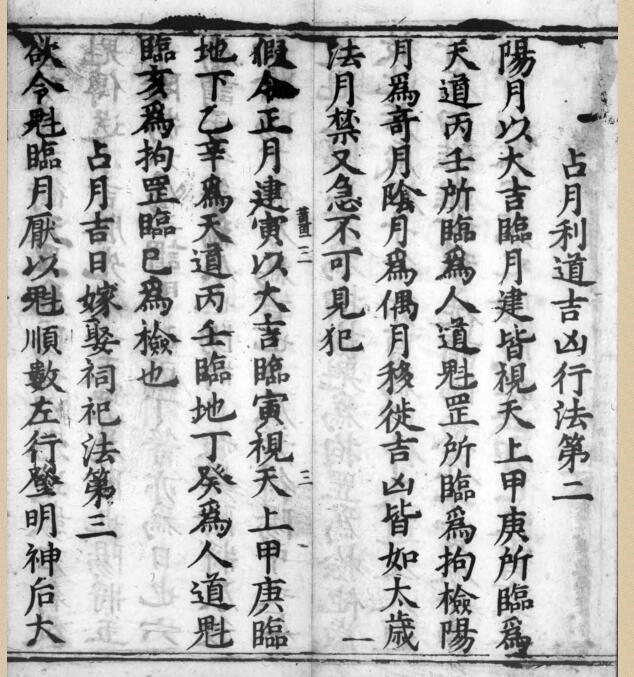 占月利道吉凶行法第二
陽月以大吉臨月建皆視天上甲庚所臨爲
天道丙壬所臨爲人道魁罡所臨爲拘檢陽
月爲奇月陰月爲偶月移徙吉凶皆如太歲
法月禁又急不可見犯
假令正月建寅以大吉臨寅視天上甲庚臨
地下乙辛爲天道丙壬臨地丁癸爲人道魁
臨亥爲拘罡臨巳爲檢也
占月吉日嫁娶祠祀法第三
欲令魁臨月厭以魁順數左行登明神后大